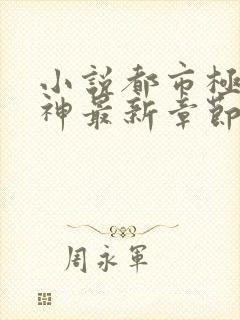 小說都市極
神最新章節
周永軍